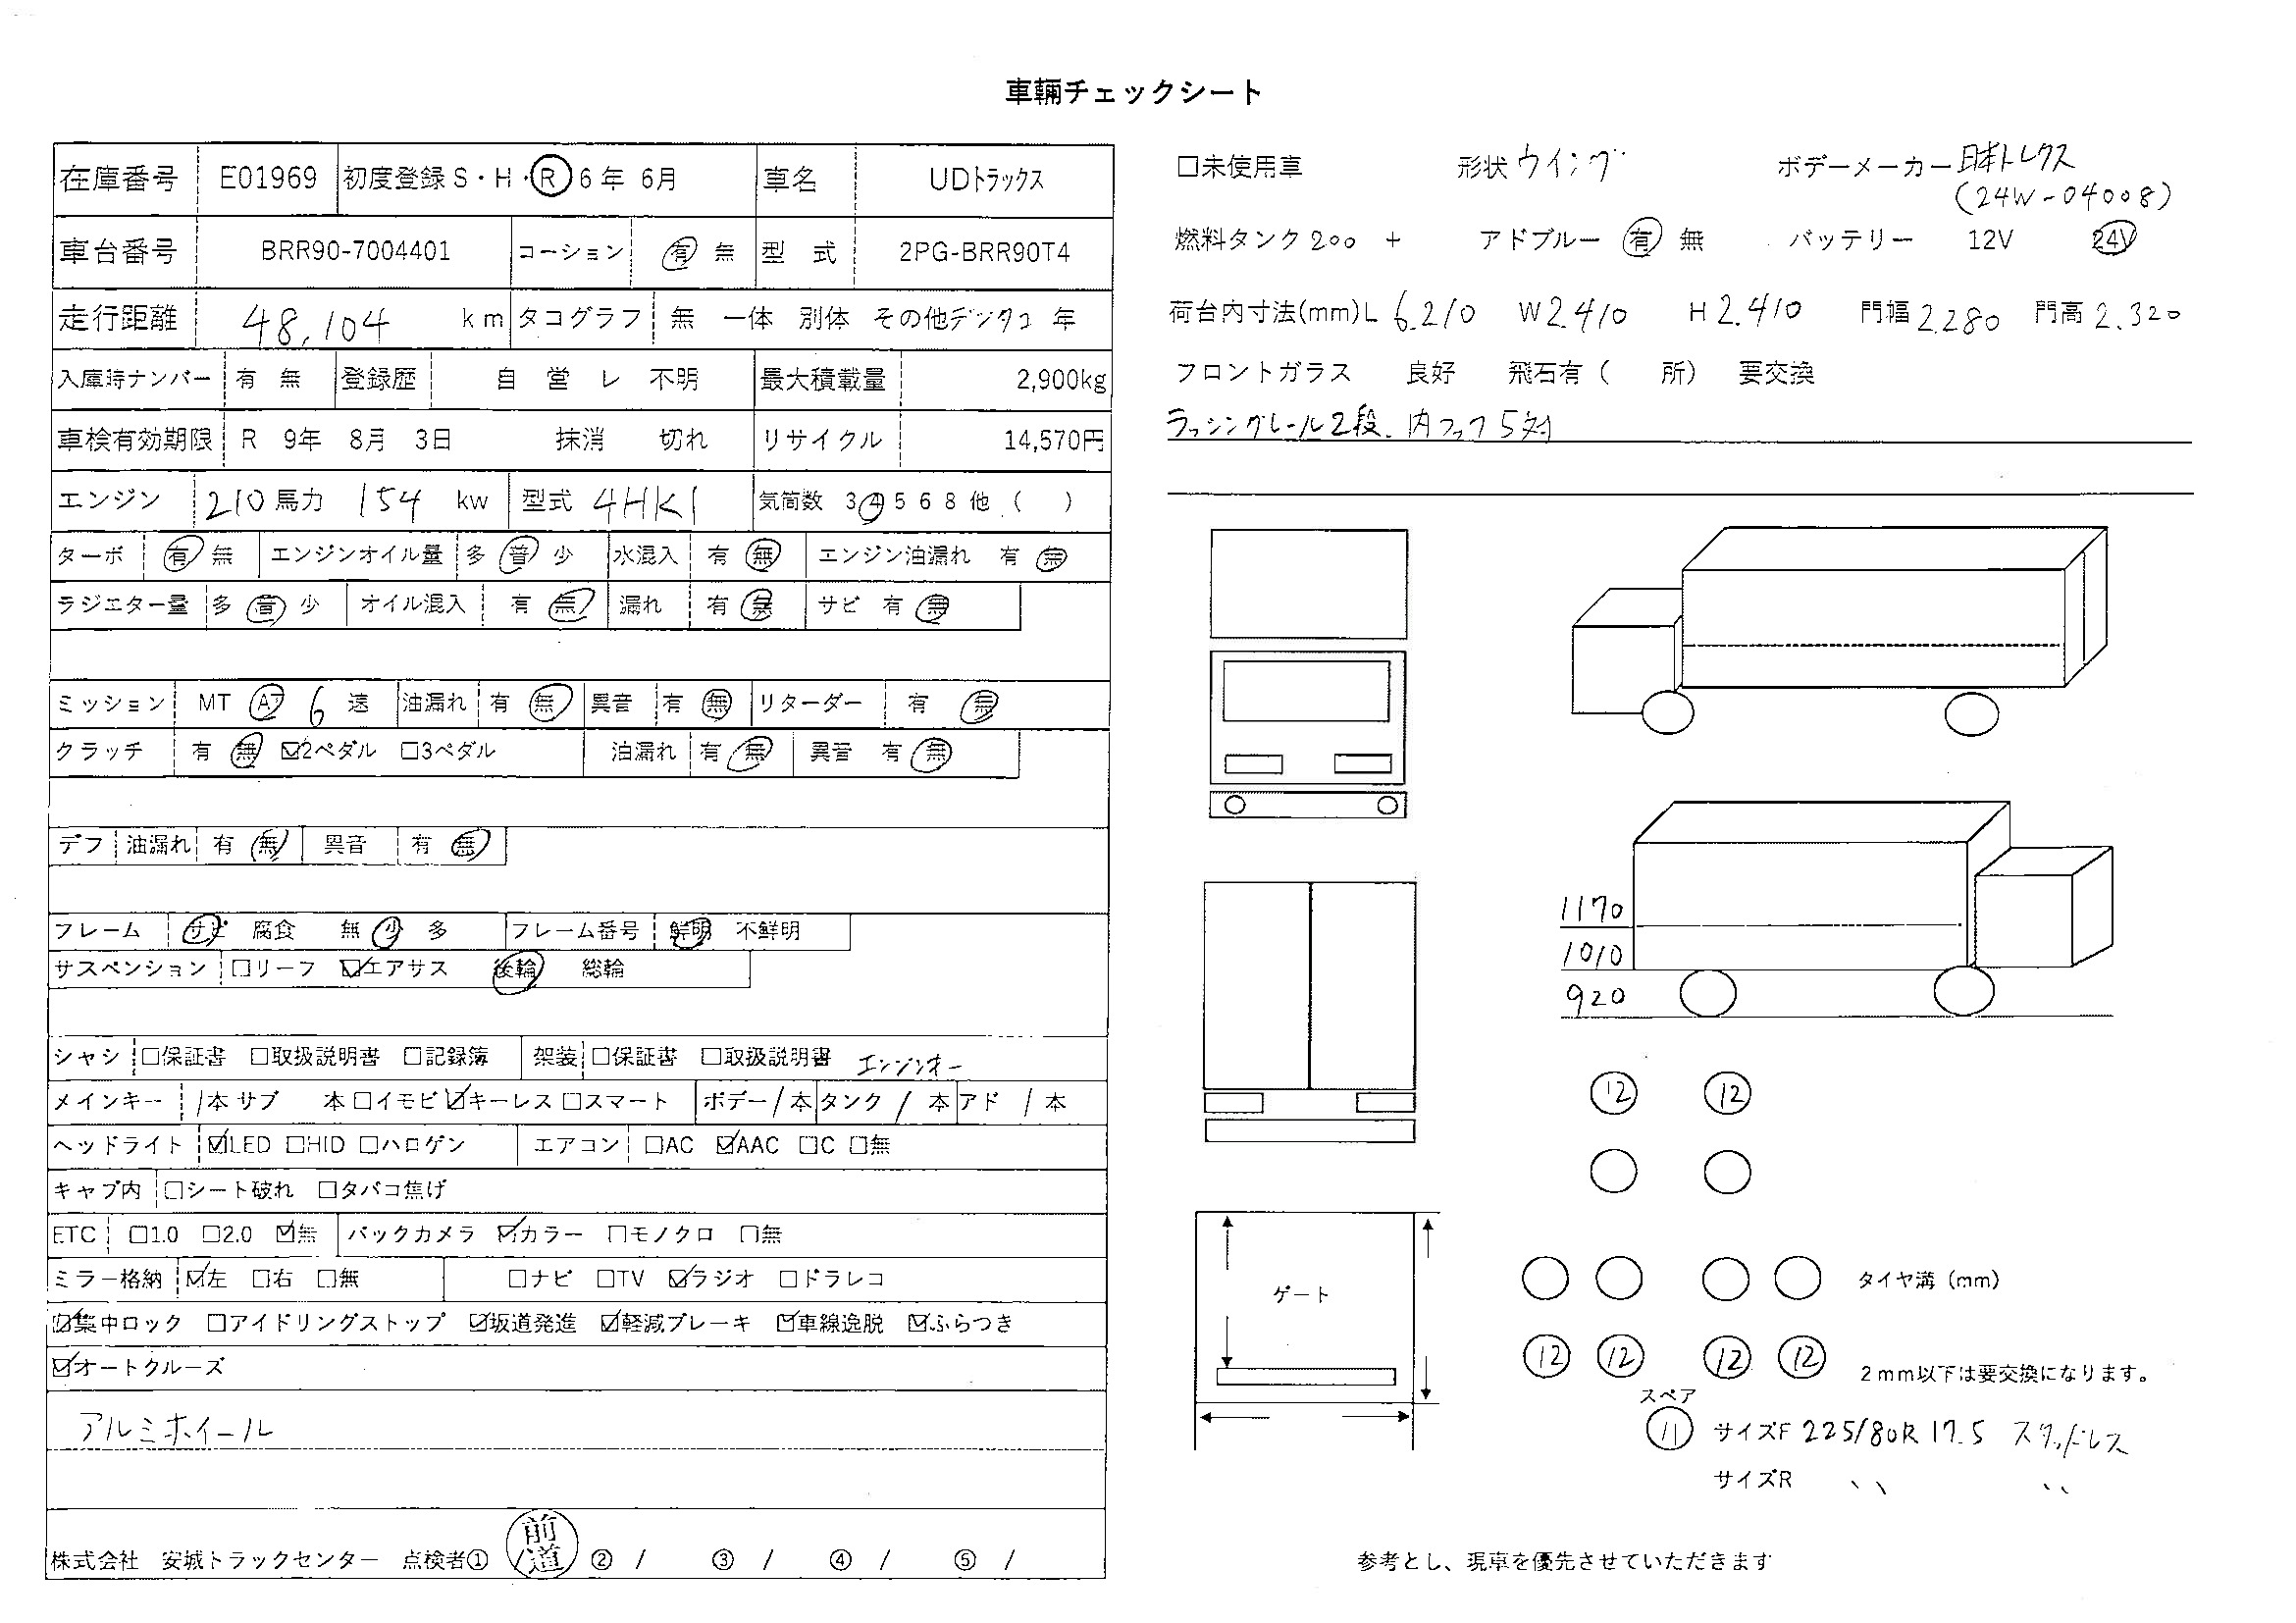 車輛チェックシート
在庫番号 E01969 初度登録 S・H・R 6年 6月 車名 UDトラックス
車台番号 BRR90-7004401 コーション 有 無 型 式 2PG-BRR90T4
走行距離 48,104 km タコグラフ 無 一体 別体 その他デジタコ 年
入庫時ナンバー 有 無 登録歴 自 営 レ 不明 最大積載量 2,900kg
車検有効期限 R 9年 8月 3日 抹消 切れ リサイクル 14,570円
エンジン 210馬力 154 kw 型式 4HK1 気筒数 3 4 5 6 8 他 ( )
ターボ 有 無 エンジンオイル量 多 普 少 水混入 有 無 エンジン油漏れ 有 無
ラジエター量 多 普 少 オイル混入 有 無 漏れ 有 無 サビ 有 無
ミッション MT AT 6 速 油漏れ 有 無 異音 有 無 リターダー 有 無
クラッチ 有 無 ☑2ペダル □3ペダル 油漏れ 有 無 異音 有 無
デフ 油漏れ 有 無 異音 有 無
フレーム サビ 腐食 無 少 多 フレーム番号 鮮明 不鮮明
サスペンション □リーフ ☑エアサス 後輪 総輪
シャシ □保証書 □取扱説明書 □記録簿 架装 □保証書 □取扱説明書 エンジンキー
メインキー 1本 サブ 本 □イモビ ☑キーレス □スマート ボデー 1本 タンク 1 本 アド 1 本
ヘッドライト ☑LED □HID □ハロゲン エアコン □AC ☑AAC □C □無
キャブ内 □シート破れ □タバコ焦げ
ETC □1.0 □2.0 ☑無 バックカメラ ☑カラー □モノクロ □無
ミラー格納 ☑左 □右 □無 □ナビ □TV ☑ラジオ □ドラレコ
☑集中ロック □アイドリングストップ ☑坂道発進 ☑軽減ブレーキ ☑車線逸脱 ☑ふらつき
☑オートクルーズ
アルミホイール
株式会社 安城トラックセンター 点検者① / 前道 ② / ③ / ④ / ⑤ /
□未使用車 形状 ウイング ボデーメーカー 日本トレクス
(24W-04008)
燃料タンク 200 + アドブルー 有 無 バッテリー 12V 24V
荷台内寸法(mm) L 6.210 W 2.410 H 2.410 門幅 2.280 門高 2.320
フロントガラス 良好 飛石有 ( 所) 要交換
ラッシングレール2段. 内フック5対
1170
1010
920
12 12
ゲート
タイヤ溝 (mm)
12 12 12 12
2mm以下は要交換になります。
スペア
11 サイズF 225/80R 17.5 スタッドレス
サイズR 〃 〃
参考とし、現車を優先させていただきます